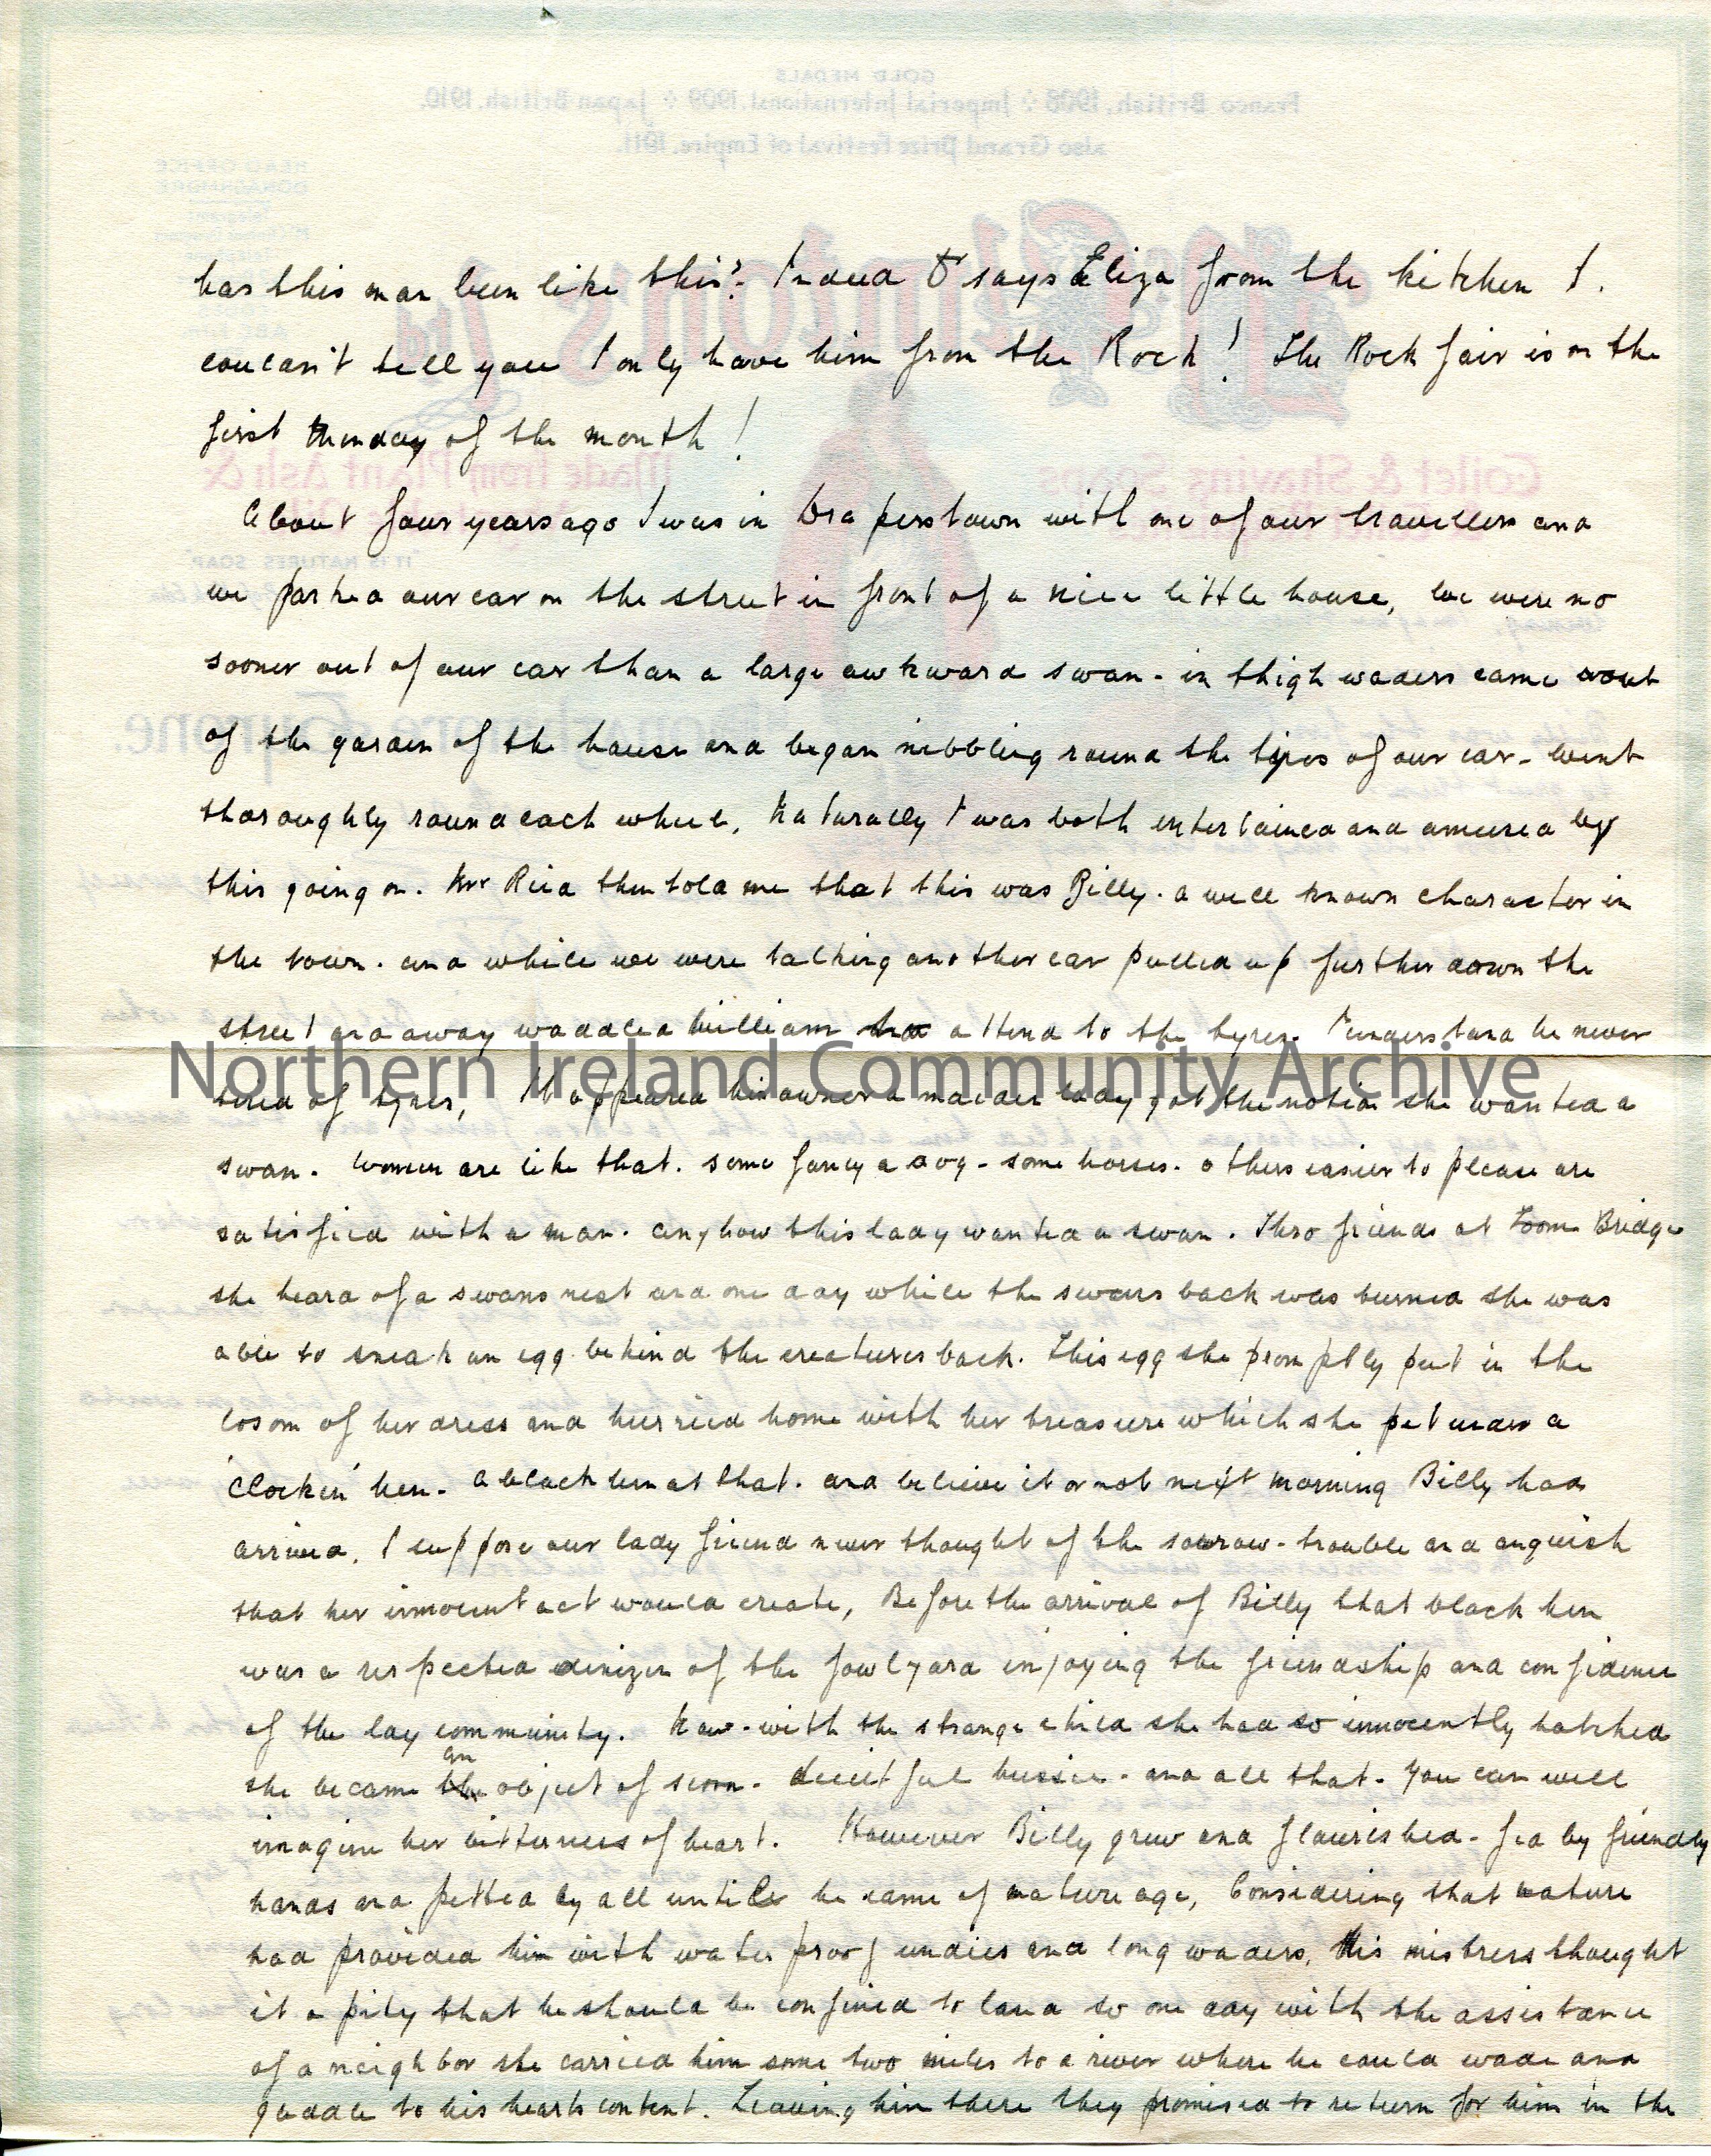 has this man been like this? Indeed O says Eliza from the kitchen I.
couldn't tell you I only have him from the Rock! The Rock fair is on the
first Munday of the month!
About four years ago I was in Draperstown with one of our travellers and
we parked our car on the street in front of a nice little house, we were no
sooner out of our car than a large awkward swan - in thigh waders came out
of the garden of the house and began nibbling round the tyres of our car - went
thoroughly round each wheel, Naturally I was both entertained and amused by
this going on. Mr Reid then told me that this was Billy. a well known character in
the town. and while we were talking another car pulled up further down the
street and away waddled William to attend to the tyres. I understand he never
Northern Ireland Community Archive
tired of tyres, It appeared his owner a maiden lady got the notion she wanted a
swan. Women are like that. some fancy a dog - some horses. others easier to please are
satisfied with a man. anyhow this lady wanted a swan. Thro friends at Toome Bridge
she heard of a swans nest and one day while the swans back was turned she was
able to sneak an egg behind the creatures back. This egg she promptly put in the
bosom of her dress and hurried home with her treasure which she put under a
'Clockin' hen. a black hen at that. and believe it or not next morning Billy had
arrived. I suppose our lady friend never thought of the sorrow - trouble and anguish
that her innocent act would create, Before the arrival of Billy that black hen
was a respected denizen of the fowlyard enjoying the friendship and confidence
of the lay community. Now - with the strange child she had so innocently hatched
she became an object of scorn - deceitful hussie - and all that - You can well
imagine her bitterness of heart. However Billy grew and flourished - fed by friendly
hands and petted by all until he came of mature age, Considering that nature
had provided him with water proof undies and long waders, his mistress thought
it a pity that he should be confined to land so one day with the assistance
of a neighbor she carried him some two miles to a river where he could wade and
guddle to his hearts content. Leaving him there they promised to return for him in the